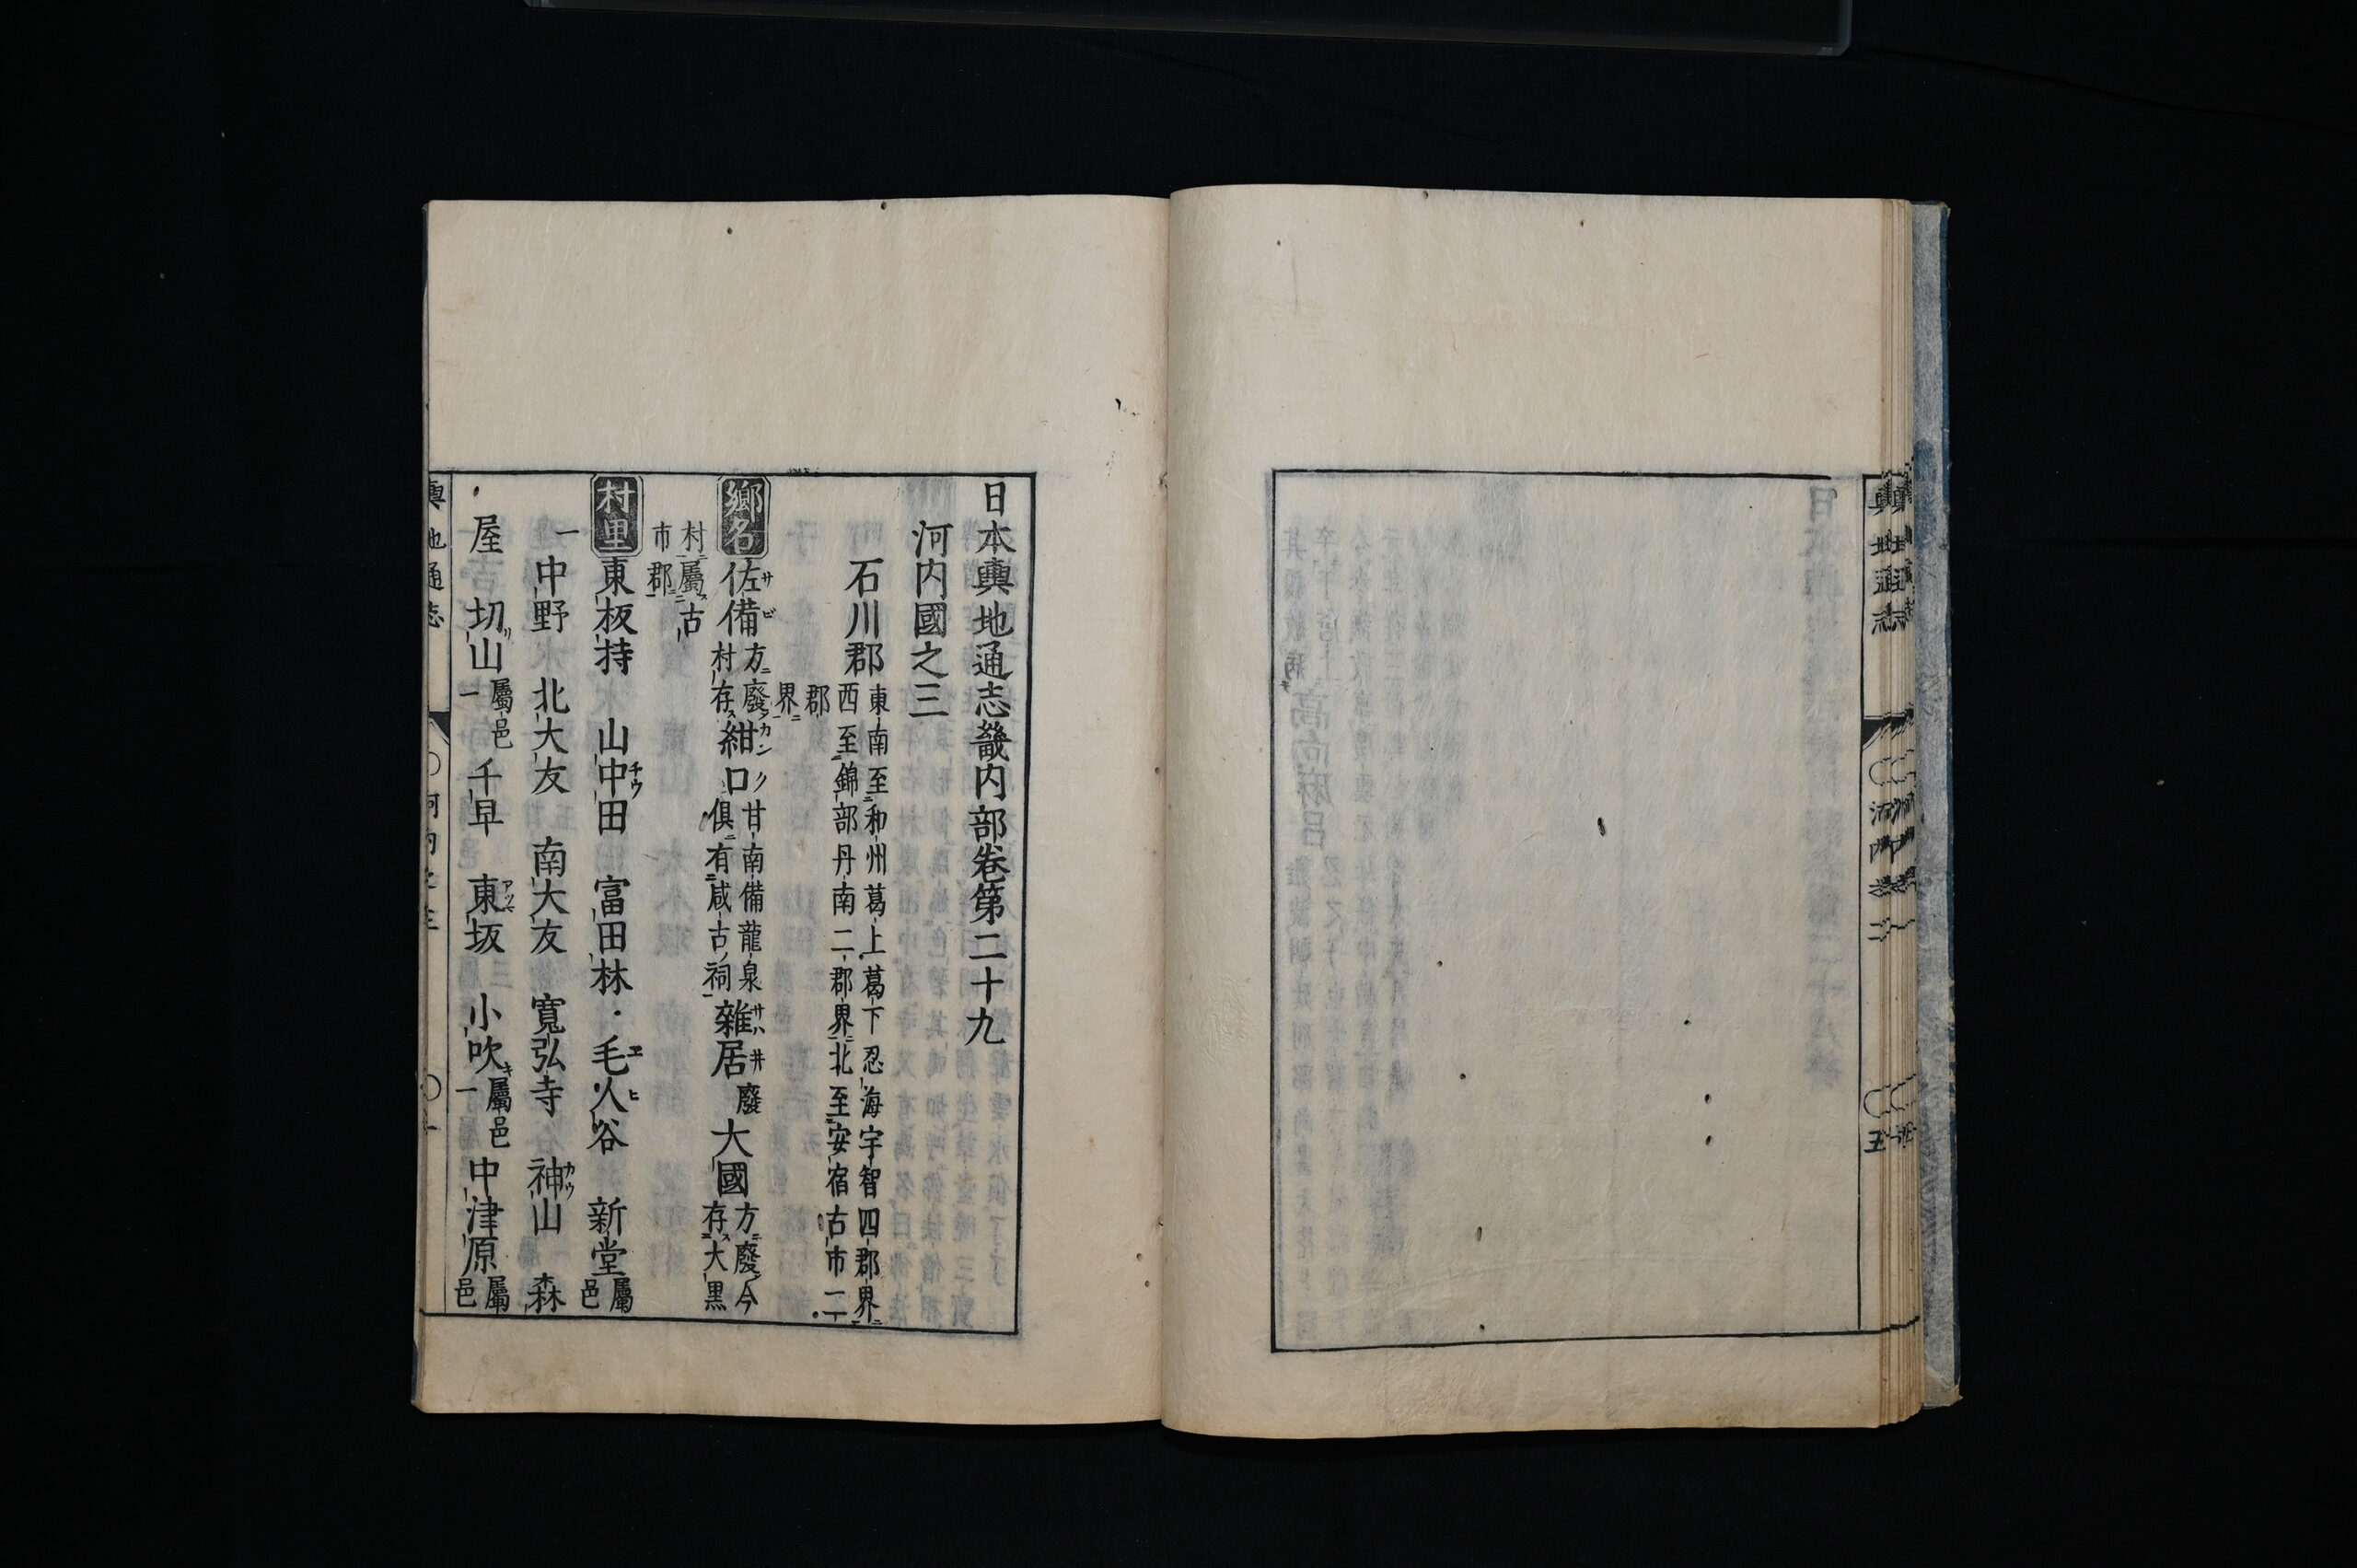 日本輿地通志畿内部卷第二十九
河内國之三
石川郡 東南至和州葛上葛下忍海宇智四郡界
西至錦部丹南二郡界北至安宿古市二
郡
界
鄕名 佐備 方廢
村存 紺口 甘南備龍泉
俱有咸古祠 雜居 廢 大國 方廢今
存大黒
村屬古
市郡
村里 東板持 山中田 富田林 毛人谷 新堂 屬
邑
一 中野 北大友 南大友 寛弘寺 神山 森
屋 切山 屬邑
一 千早 東坂 小吹 屬邑
一 中津原 屬
邑
輿地通志 河内之三 一
輿地通志 五